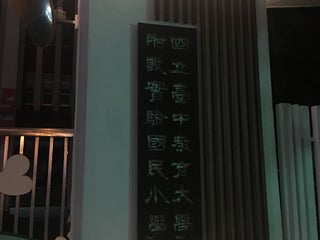 國立臺中教育大學
附設實驗國民小學